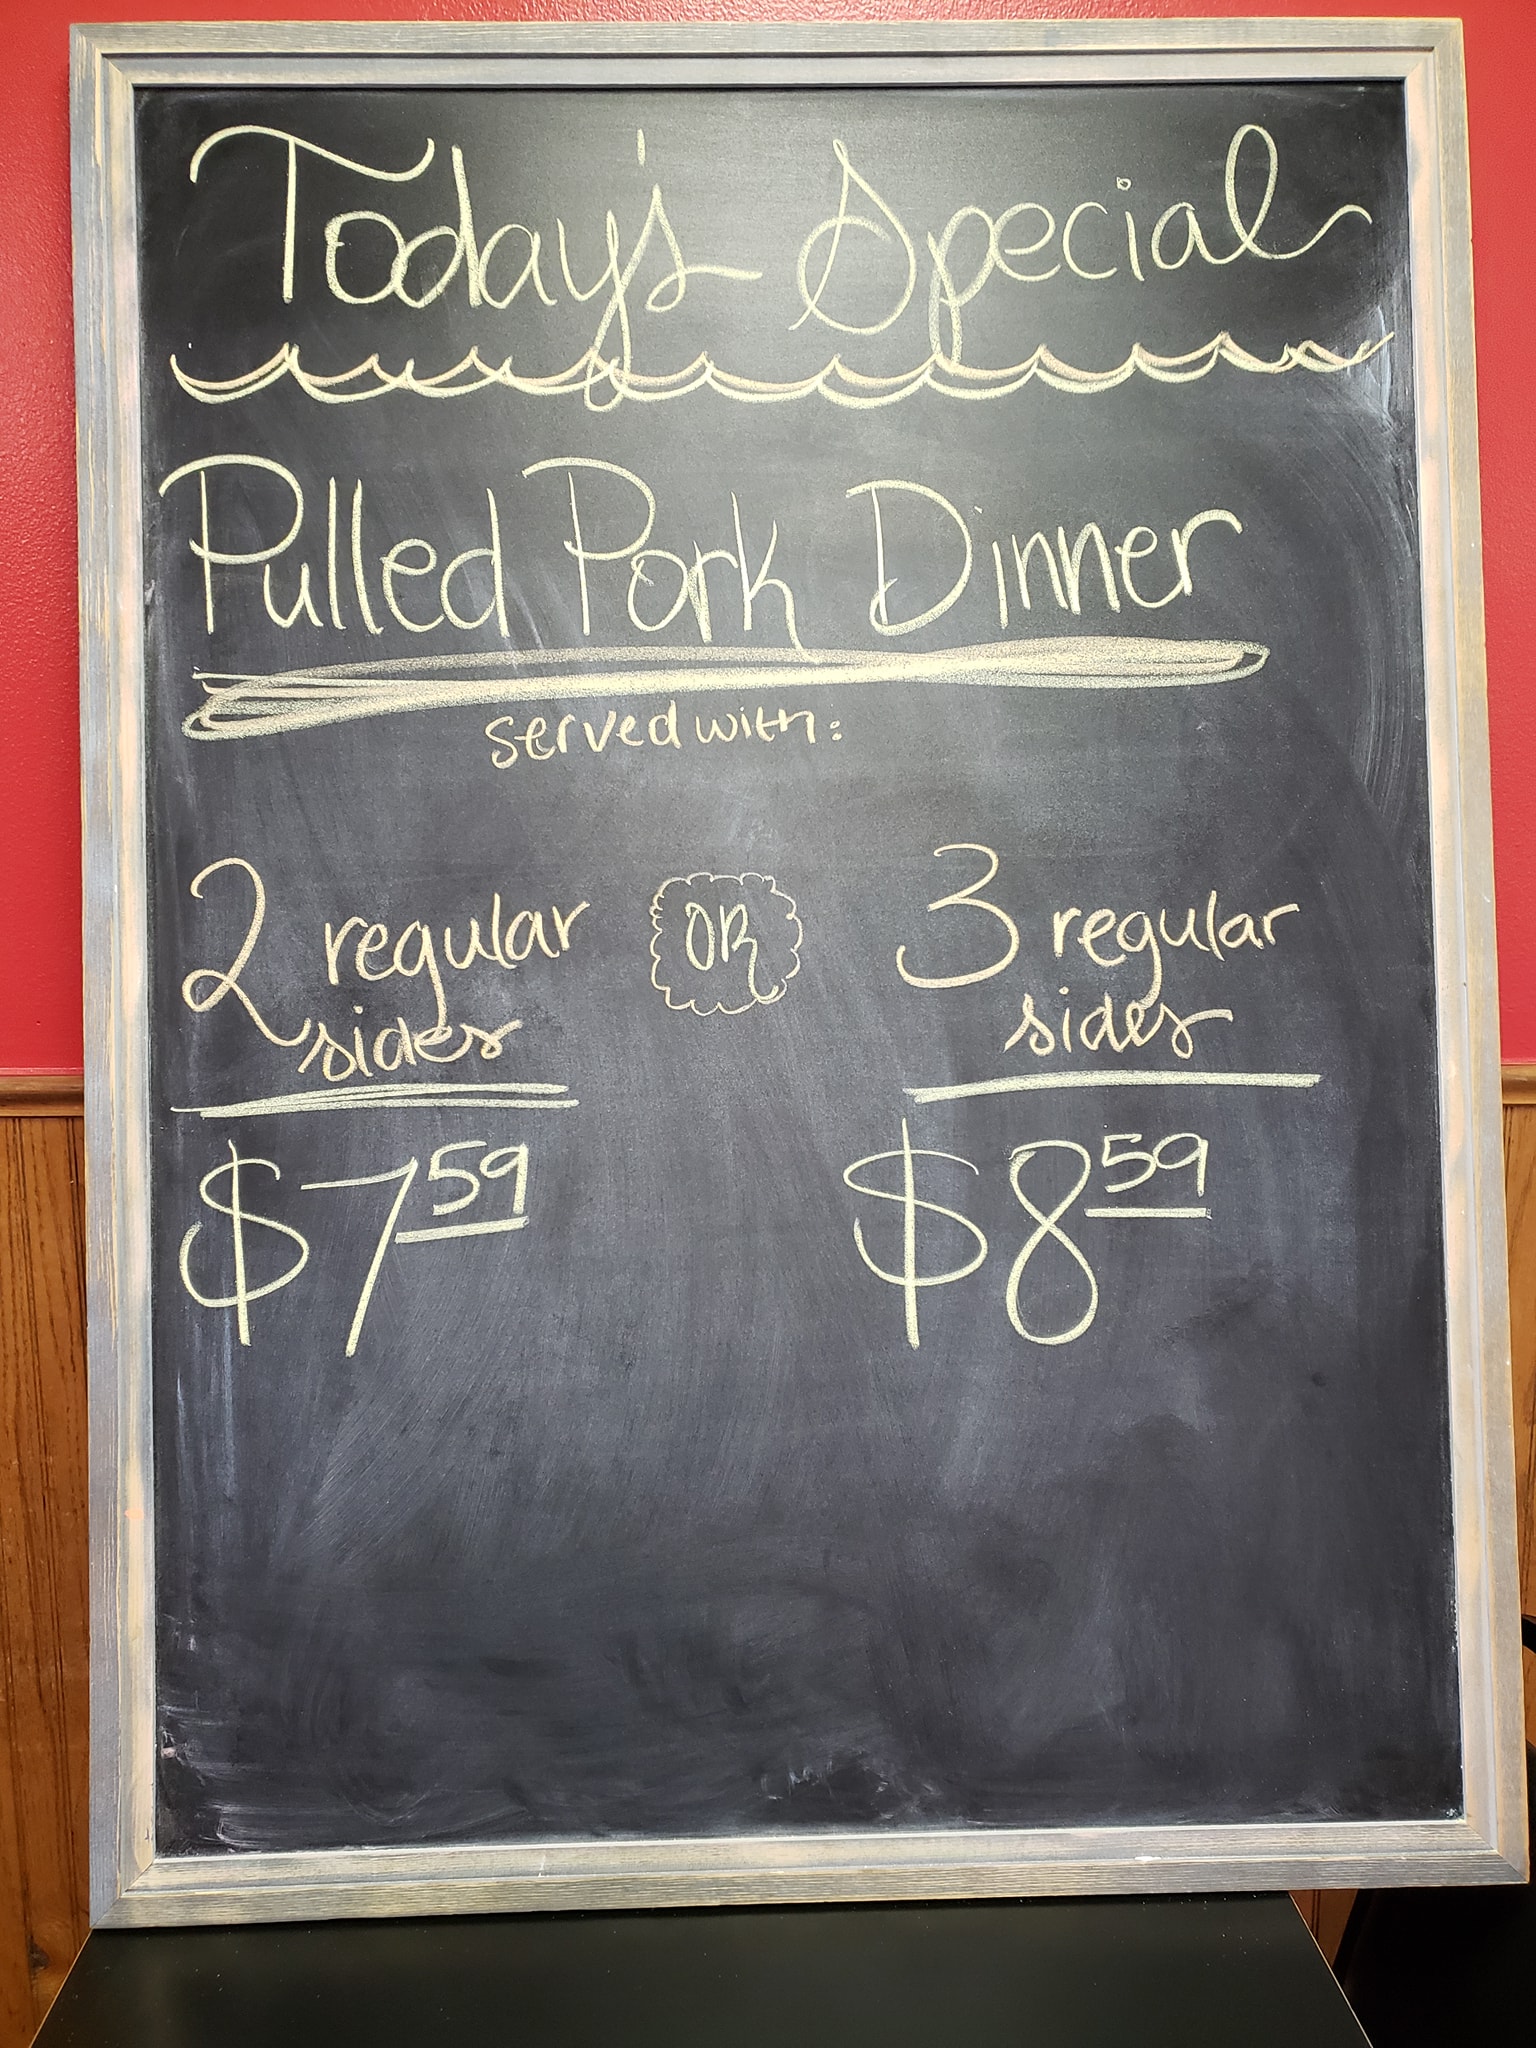 Today's Special
Pulled Pork Dinner
served with:
2 regular sides
OR
3 regular sides
$7.59
$8.59